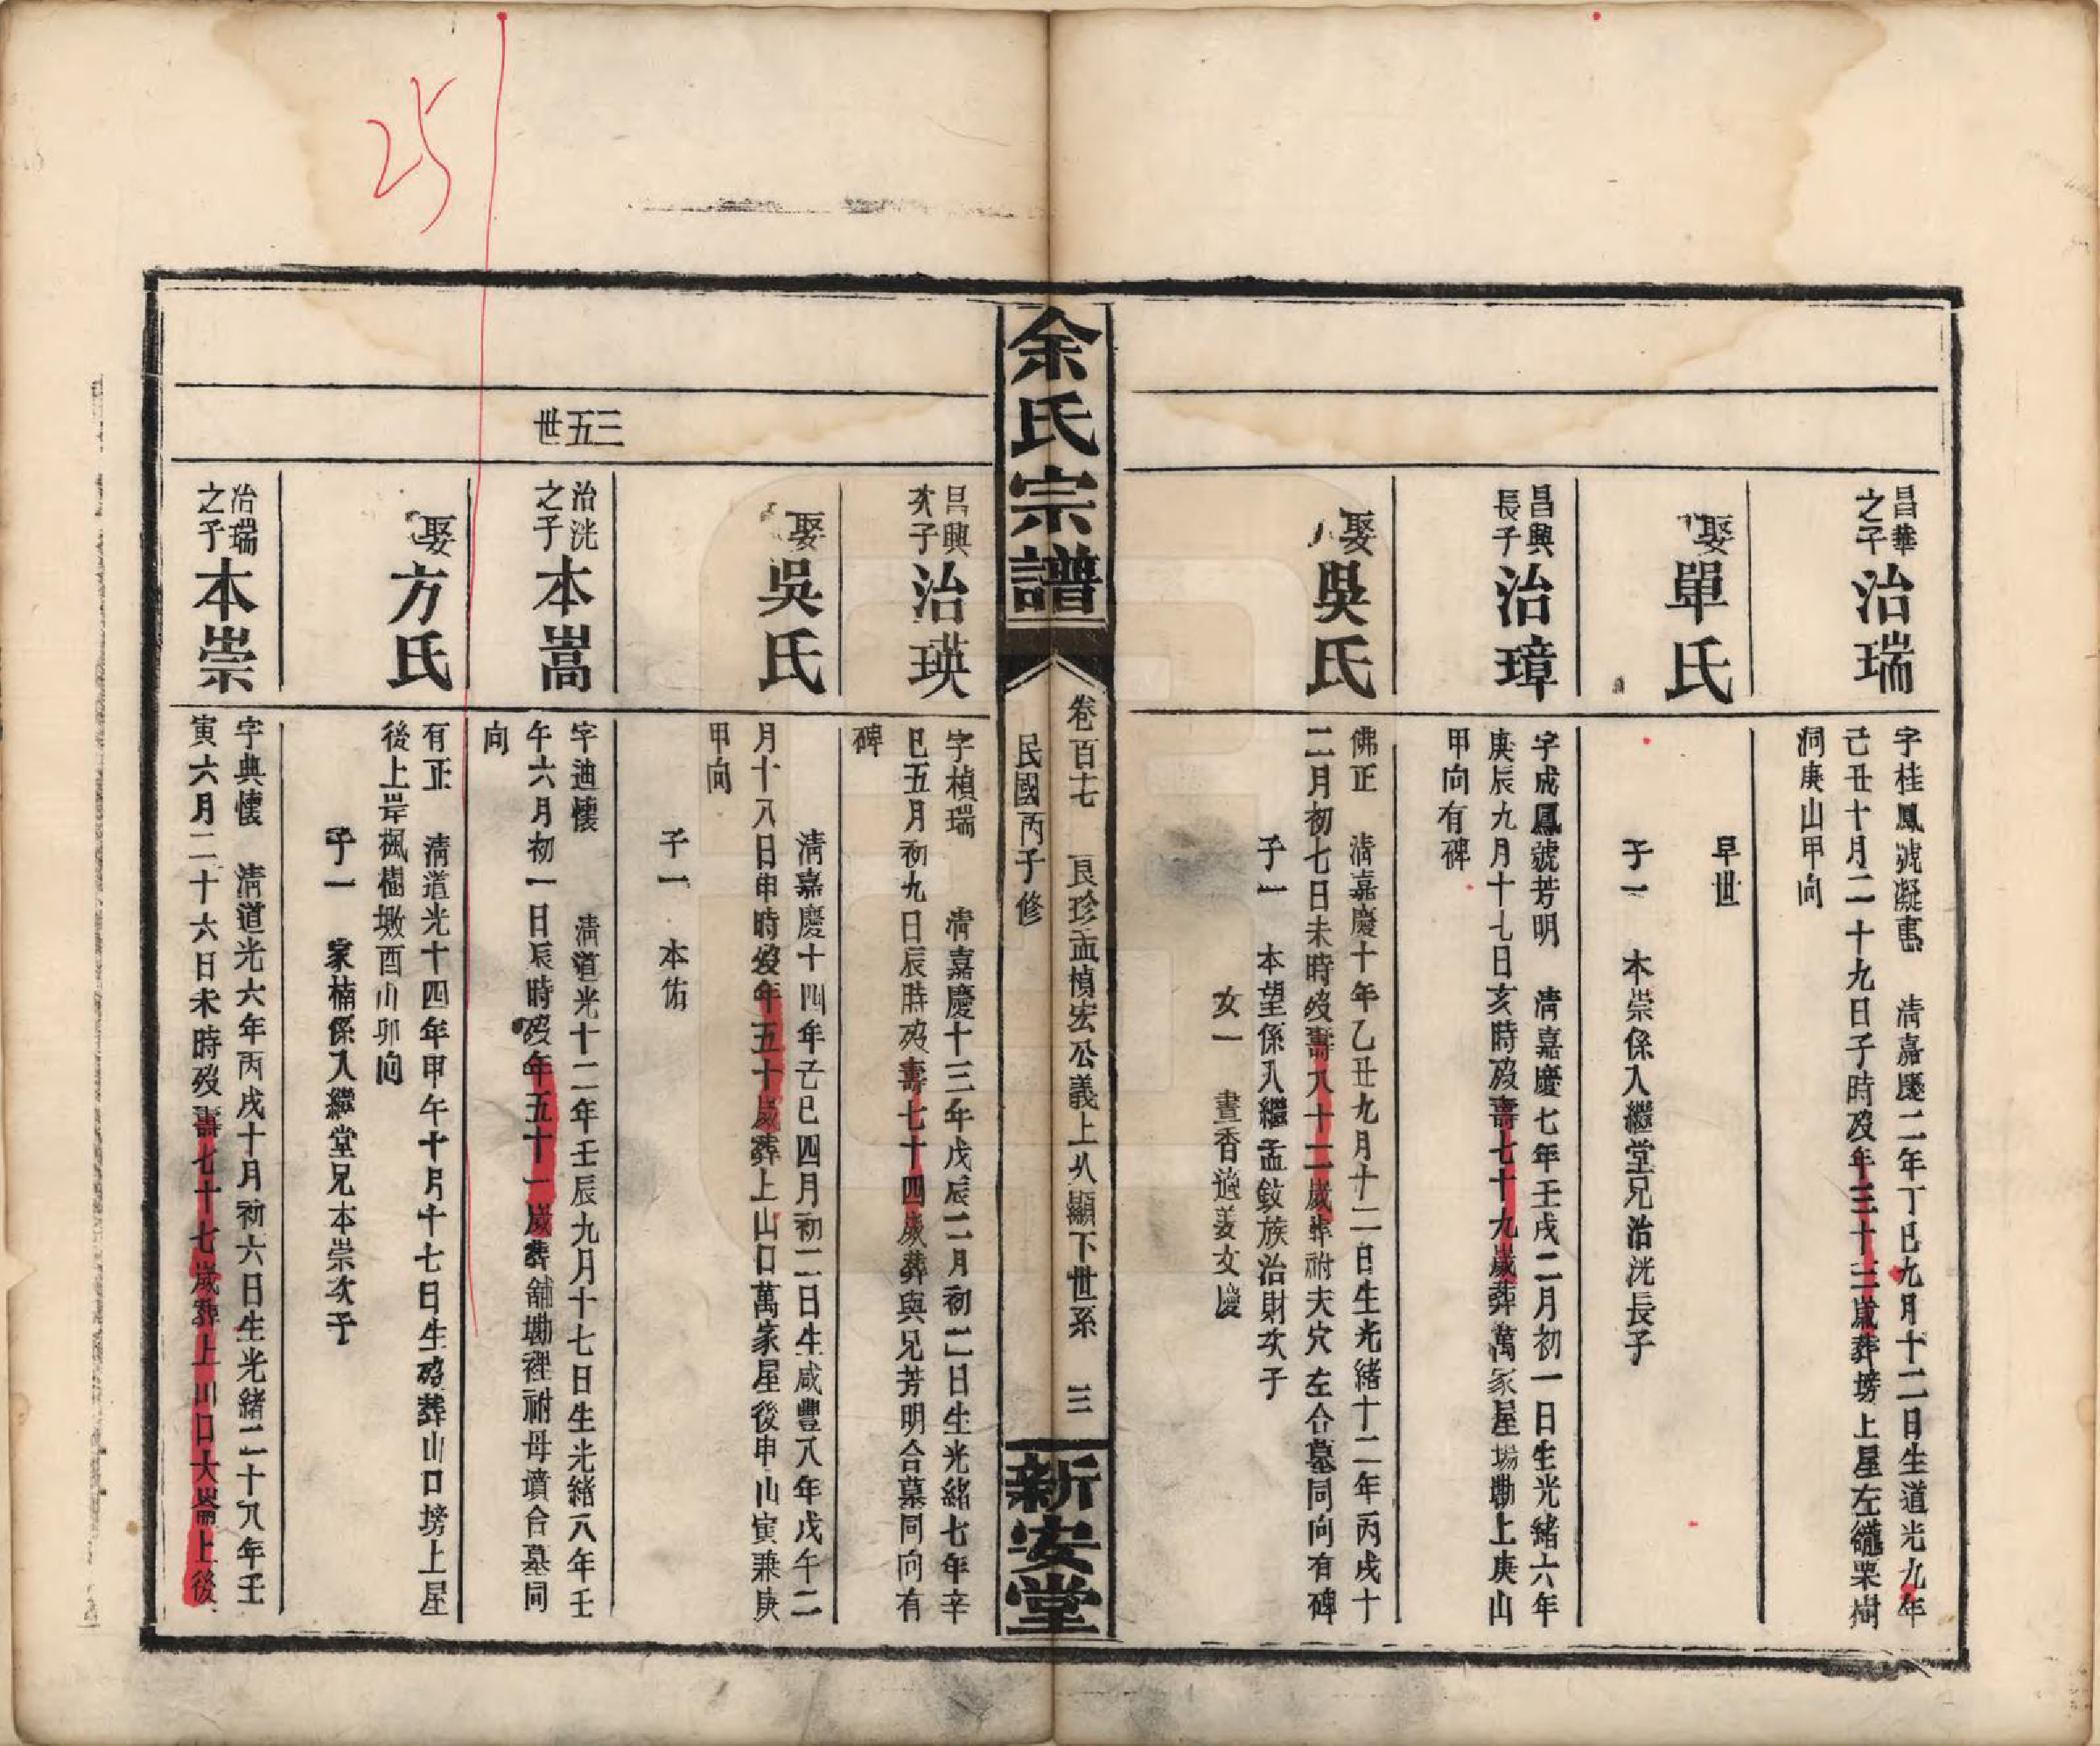 昌華之子
治瑞
字桂鳳號凝 清嘉慶二年丁巳九月十二日生道光九年
己丑十月二十九日子時歿年三十三歲葬塝上屋左 栗樹
洞庚山甲向
娶單氏
早世
子一 本崇係入繼堂兄治洸長子
昌興長子
治璋
字成鳳號芳明 清嘉慶七年壬戌二月初一日生光緒六年
庚辰九月十七日亥時歿壽七十九歲葬萬家屋場勘上庚山
甲向有碑
娶吳氏
佛正 清嘉慶十年乙丑九月十二日生光緒十二年丙戌十
二月初七日未時歿壽八十二歲葬祔夫穴左合墓同向有碑
子一 本望係入繼孟敘族治財次子
女一 書香適姜文慶
余氏宗譜
卷百七 艮珍孟楨宏公義上八顯下世系 三
民國丙子修
新安堂
昌興次子
治瑛
字楨瑞 清嘉慶十三年戊辰二月初二日生光緒七年辛
巳五月初九日辰時歿壽七十四歲葬與兄芳明合墓同向有
碑
娶吳氏
清嘉慶十四年己巳四月初二日生咸豐八年戊午二
月十八日申時歿年五十歲葬上山口萬家屋後申山寅兼庚
甲向
子一 本佑
三五世
治洸之子
本嵩
字迪懷 清道光十二年壬辰九月十七日生光緒八年壬
午六月初一日辰時歿年五十一歲葬舖勘裡祔母墳合墓同
向
娶方氏
有正 清道光十四年甲午十月十七日生歿葬山口塝上屋
後上岸楓樹墩酉山卯向
子一 家楠係入繼堂兄本崇次子
治瑞之子
本崇
字典懷 清道光六年丙戌十月初六日生光緒二十八年壬
寅六月二十六日未時歿壽七十七歲葬上山口大崙上後
25